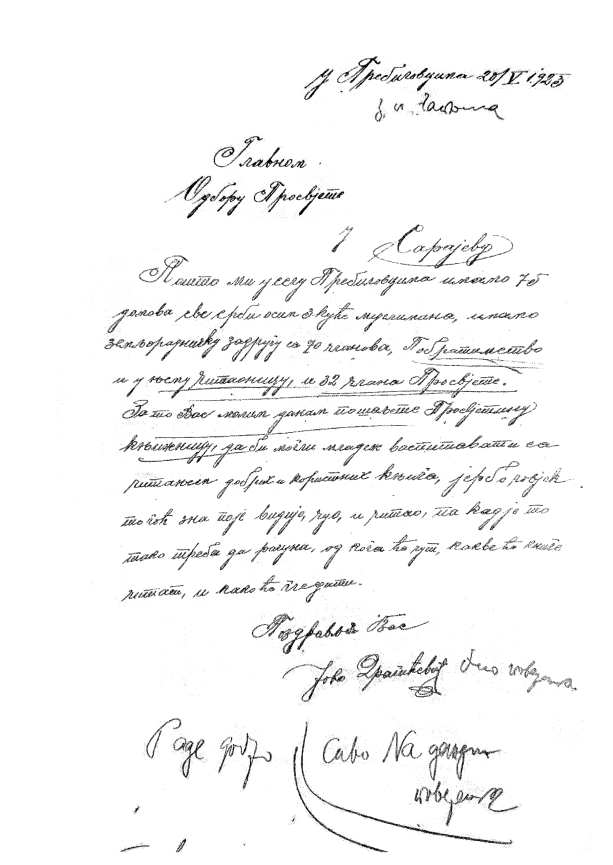 У Пребиловцима 20/V 1925
Главном
Одбору Просвјете
У Сарајеву
Пошто ми у селу Пребиловцима имамо 75
домова све срби осим 3 куће муслимана, имамо
земљорадничку задругу са 70 чланова, Побратимство
и у њему читаоницу, и 32 члана Просвјете.
Зато Вас молим да нам пошаљете Просвјетину
књижницу, да би могли младеж васпитавати са
читањем добрих и корисних књига, јербо човјек
то гођ зна то је видијо, чуо, и читао, па кад је то
тако треба да рачуна, од кога ће чут, какве ће књиге
читат, и како ће гледати.
Поздравља Вас
Јово
Раде
Саво На